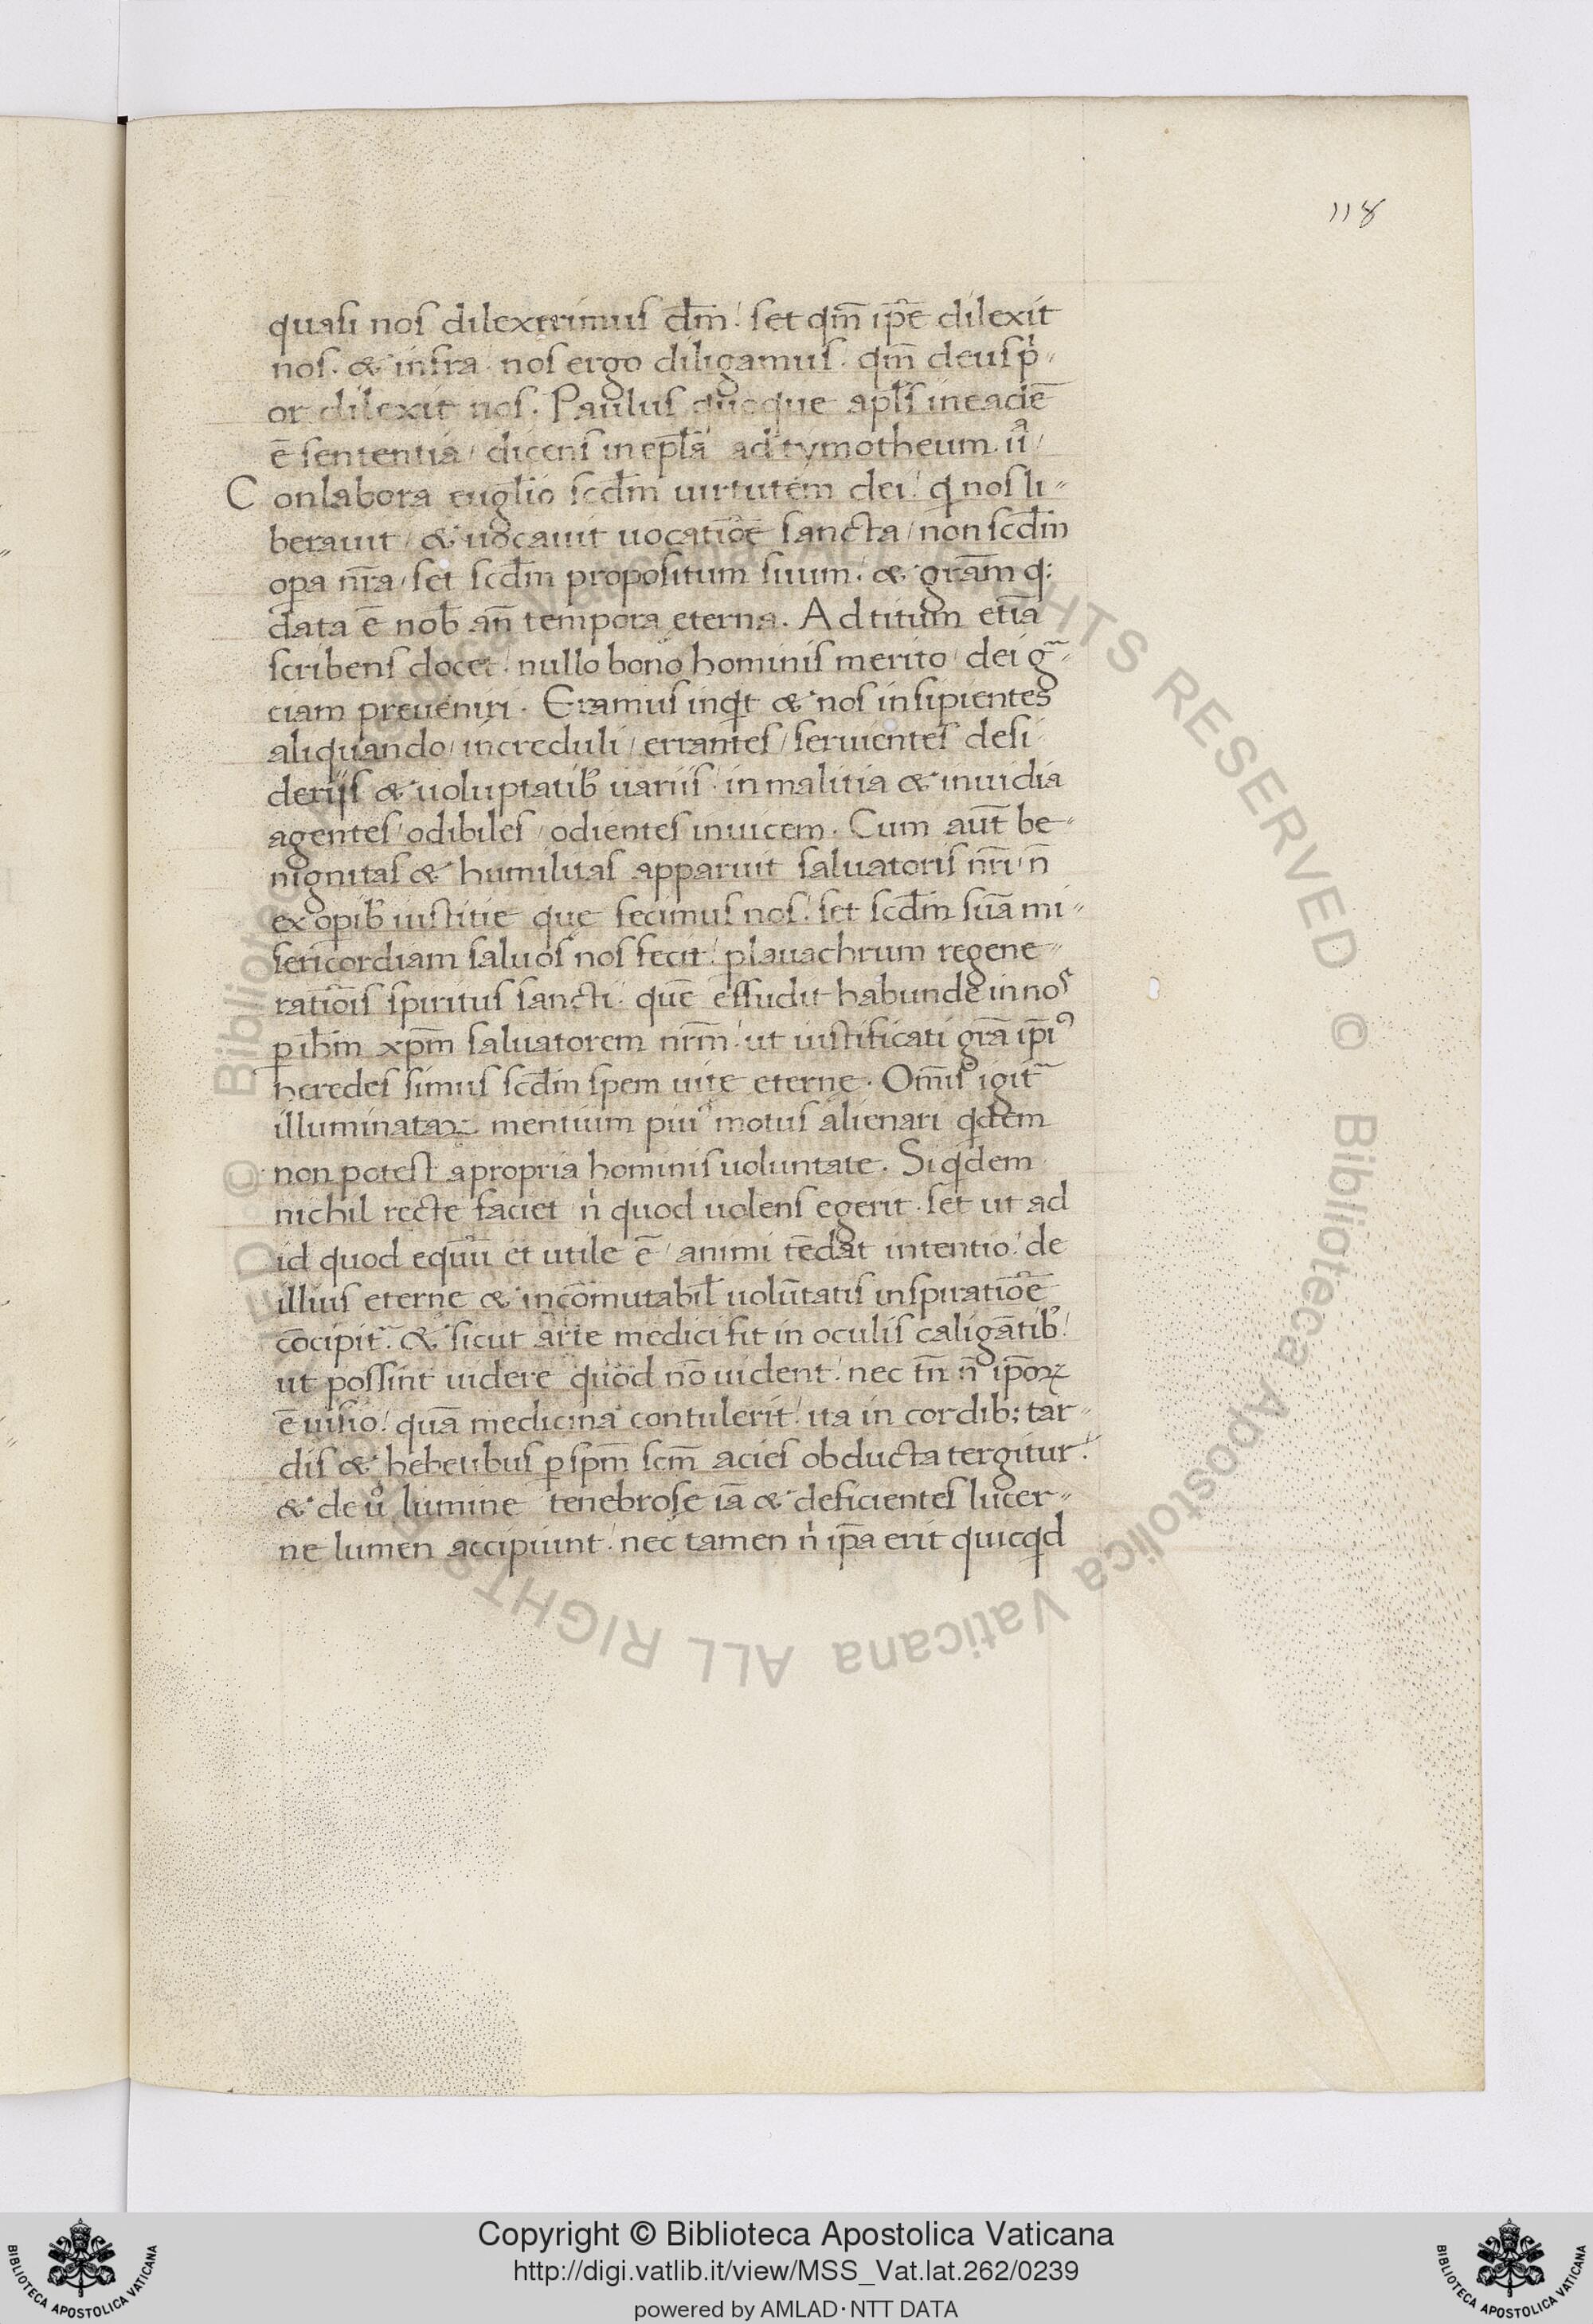 118
quasi nos dilexerimus dm̅. set qm̅ ip̅e dilexit
nos. & infra nos ergo diligamus. qm̅ deus pⁱ-
or dilexit nos. Paulus quoque apl̅s in eade̅
e̅ sententia / dicens in epl̅a ad tymotheum. iiͣ /
Conlabora eug̅lio scd̅m uirtutem dei. qⁱ nos li-
berauit / & uocauit uocatio̅e sancta / non scd̅m
oꝑa nr̅a / set scd̅m propositum suum. & gr̅am q;
data e̅ nob̅ an̅ tempora eterna. Ad titum etia̅
scribens docet. nullo bono hominis merito / dei gͣ-
ciam preueniri. Eramus inqⁱt & nos insipientes
aliquando / increduli / errantes / seruientes desi
deriis & uoluptatib; uariis. in malitia & inuidia
agentes / odibiles / odientes inuicem. Cum aut̅ be-
nignitas & humilitas apparuit saluatoris nr̅i n̅
ex oꝑib; iustitie que fecimus nos. set scd̅m sua̅ mi-
sericordiam saluos nos fecit. ꝑ lauachrum regene-
ratio̅is spiritus sancti. que̅ effudit habunde in nos
ꝑ ih̅m xp̅m saluatorem nr̅m. ut iustificati gr̅a ip̅iꝰ
heredes simus scd̅m spem uite eterne. Om̅is igit᷑
illuminataꝝ mentium pius motus alienari qⁱdem
non potest a propria hominis uoluntate. Siqⁱdem
nichil recte faciet nⁱ quod uolens egerit. set ut ad
id quod equu̅ et utile e̅ / animi te̅dat intentio. de
illius eterne & inco̅mutabil̅ uolu̅tatis inspiratio̅e
co̅cipit᷑. & sicut arte medici fit in oculis caliga̅tib;
ut possint uidere quod no̅ uident. nec tn̅ n̅ ip̅oꝝ
e̅ uisio. qua̅ medicina contulerit. ita in cordib; tar-
dis & hebetibus ꝑ sp̅m sc̅m acies obducta tergitur.
& de uº lumine tenebrose ia̅ & deficientes lucer-
ne lumen accipiunt. nec tamen nⁱ ip̅a erit quicqⁱd
Copyright © Biblioteca Apostolica Vaticana
http://digi.vatlib.it/view/MSS_Vat.lat.262/0239
powered by AMLAD·NTT DATA